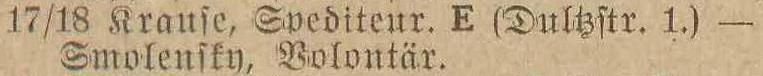 17/18 Krauſe, Spediteur. E (Dultzſtr. 1.) —
Smolenſky, Volontär.